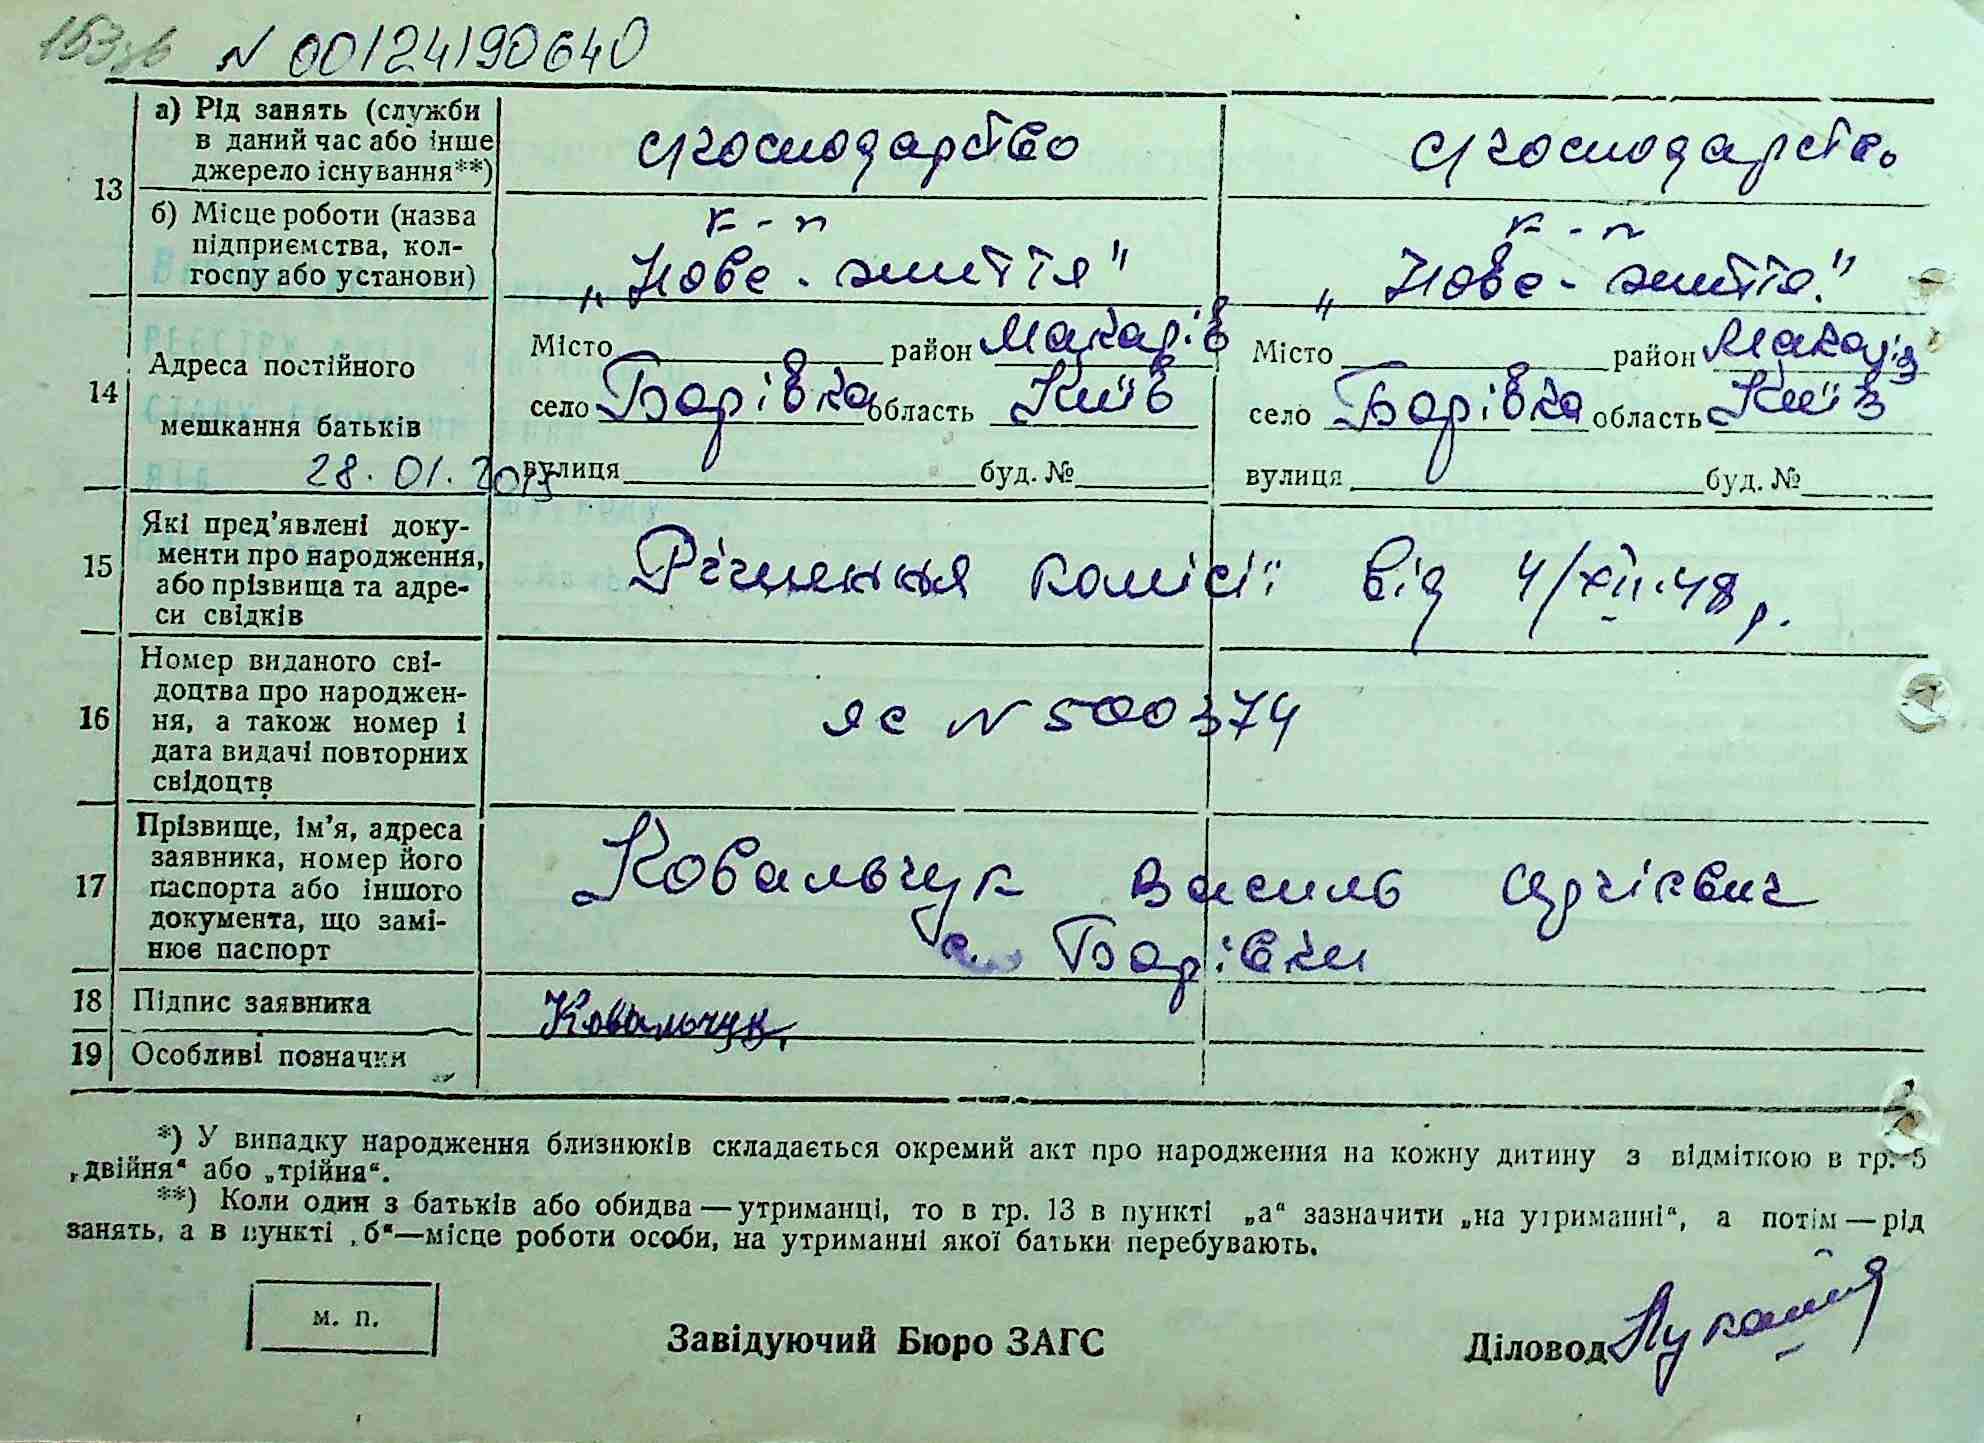 153зв N 00124190640
13
а) Рід занять (служби в даний час або інше джерело існування**)
с/господарство
с/господарство
б) Місце роботи (назва підприємства, колгоспу або установи)
к-п
„Нове - життя"
к-п
„Нове - життя."
14
Адреса постійного мешкання батьків
28.01.2015
Місто район Макарів
село Борівка область Київ
вулиця буд. №
Місто район Макарів
село Борівка область Київ
вулиця буд. №
15
Які пред'явлені документи про народження, або прізвища та адреси свідків
Рішення комісії від 4/XII.48 р.
16
Номер виданого свідоцтва про народження, а також номер і дата видачі повторних свідоцтв
яс N 500374
17
Прізвище, ім'я, адреса заявника, номер його паспорта або іншого документа, що замінює паспорт
Ковальчук Василь
с. Борівки
18
Підпис заявника
Ковальчук
19
Особливі позначки
*) У випадку народження близнюків складається окремий акт про народження на кожну дитину з відміткою в гр. 5
„двійня" або „трійня".
**) Коли один з батьків або обидва — утриманці, то в гр. 13 в пункті „а" зазначити „на утриманні", а потім — рід
занять, а в пункті „б"—місце роботи особи, на утриманні якої батьки перебувають.
м. п.
Завідуючий Бюро ЗАГС
Діловод